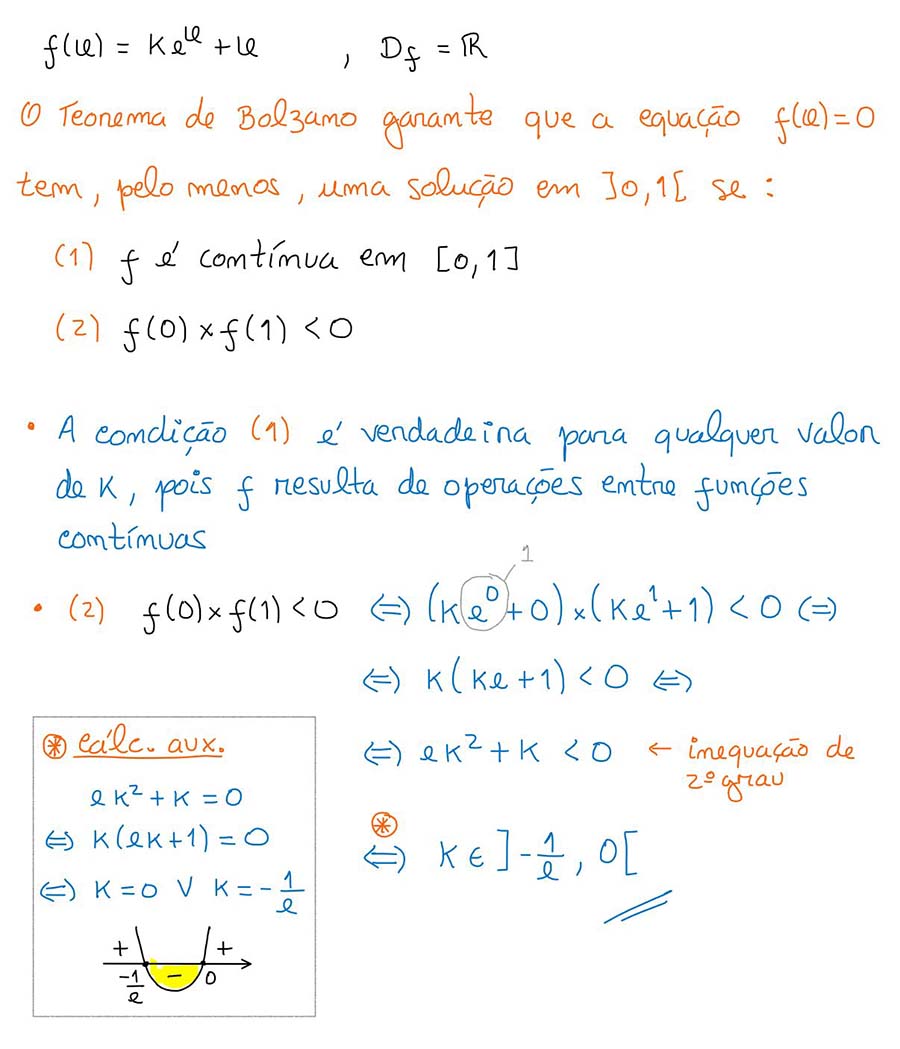 f(x) = Ke^x + x , D_f = ℝ
O Teorema de Bolzano garante que a equação f(x)=0
tem, pelo menos, uma solução em ]0,1[ se :
(1) f é contínua em [0,1]
(2) f(0)×f(1) < 0
• A condição (1) é verdadeira para qualquer valor
de K, pois f resulta de operações entre funções
contínuas
1
• (2) f(0)×f(1)<0 ⇔ (Ke^0+0)×(Ke^1+1) < 0 ⇔
⇔ K(Ke+1) < 0 ⇔
⇔ eK²+K < 0 ← inequação de
2º grau
⊛
⇔ K ∈ ]-1/e, 0[
⊛ cálc. aux.
eK²+K = 0
⇔ K(eK+1) = 0
⇔ K=0 ∨ K=-1/e
+ +
-1/e − 0